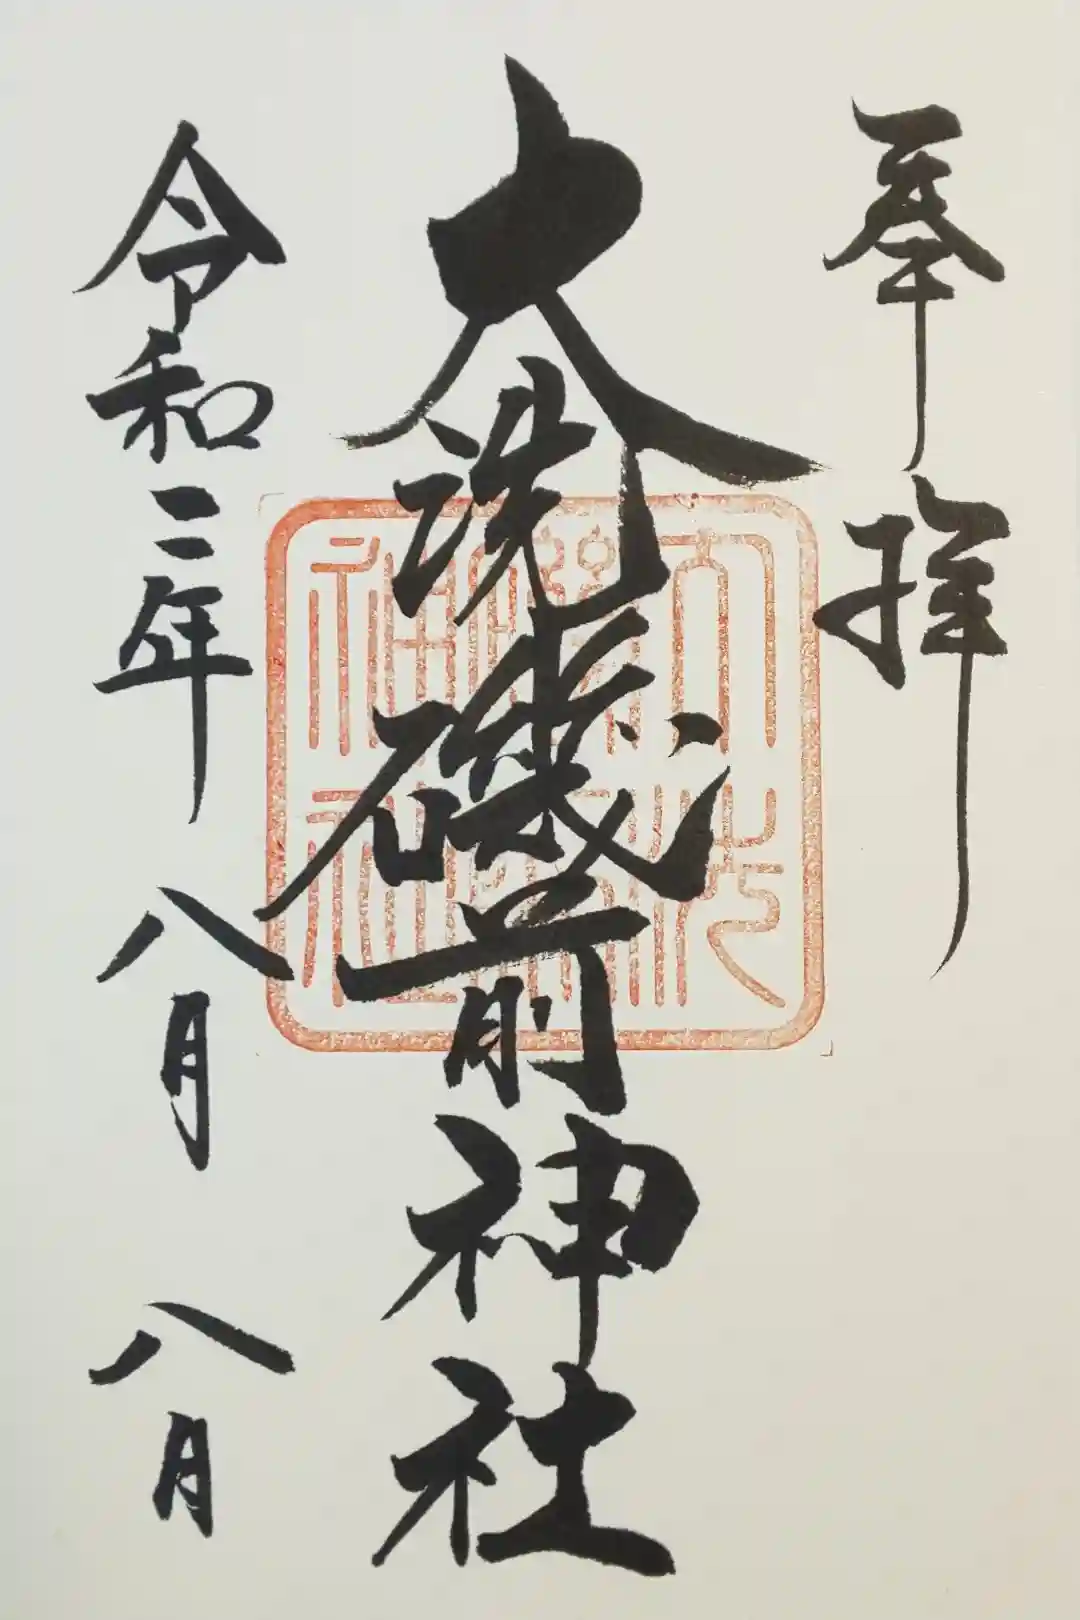 奉拝
大洗磯前神社
大洗
磯前
神社
令和二年八月八月